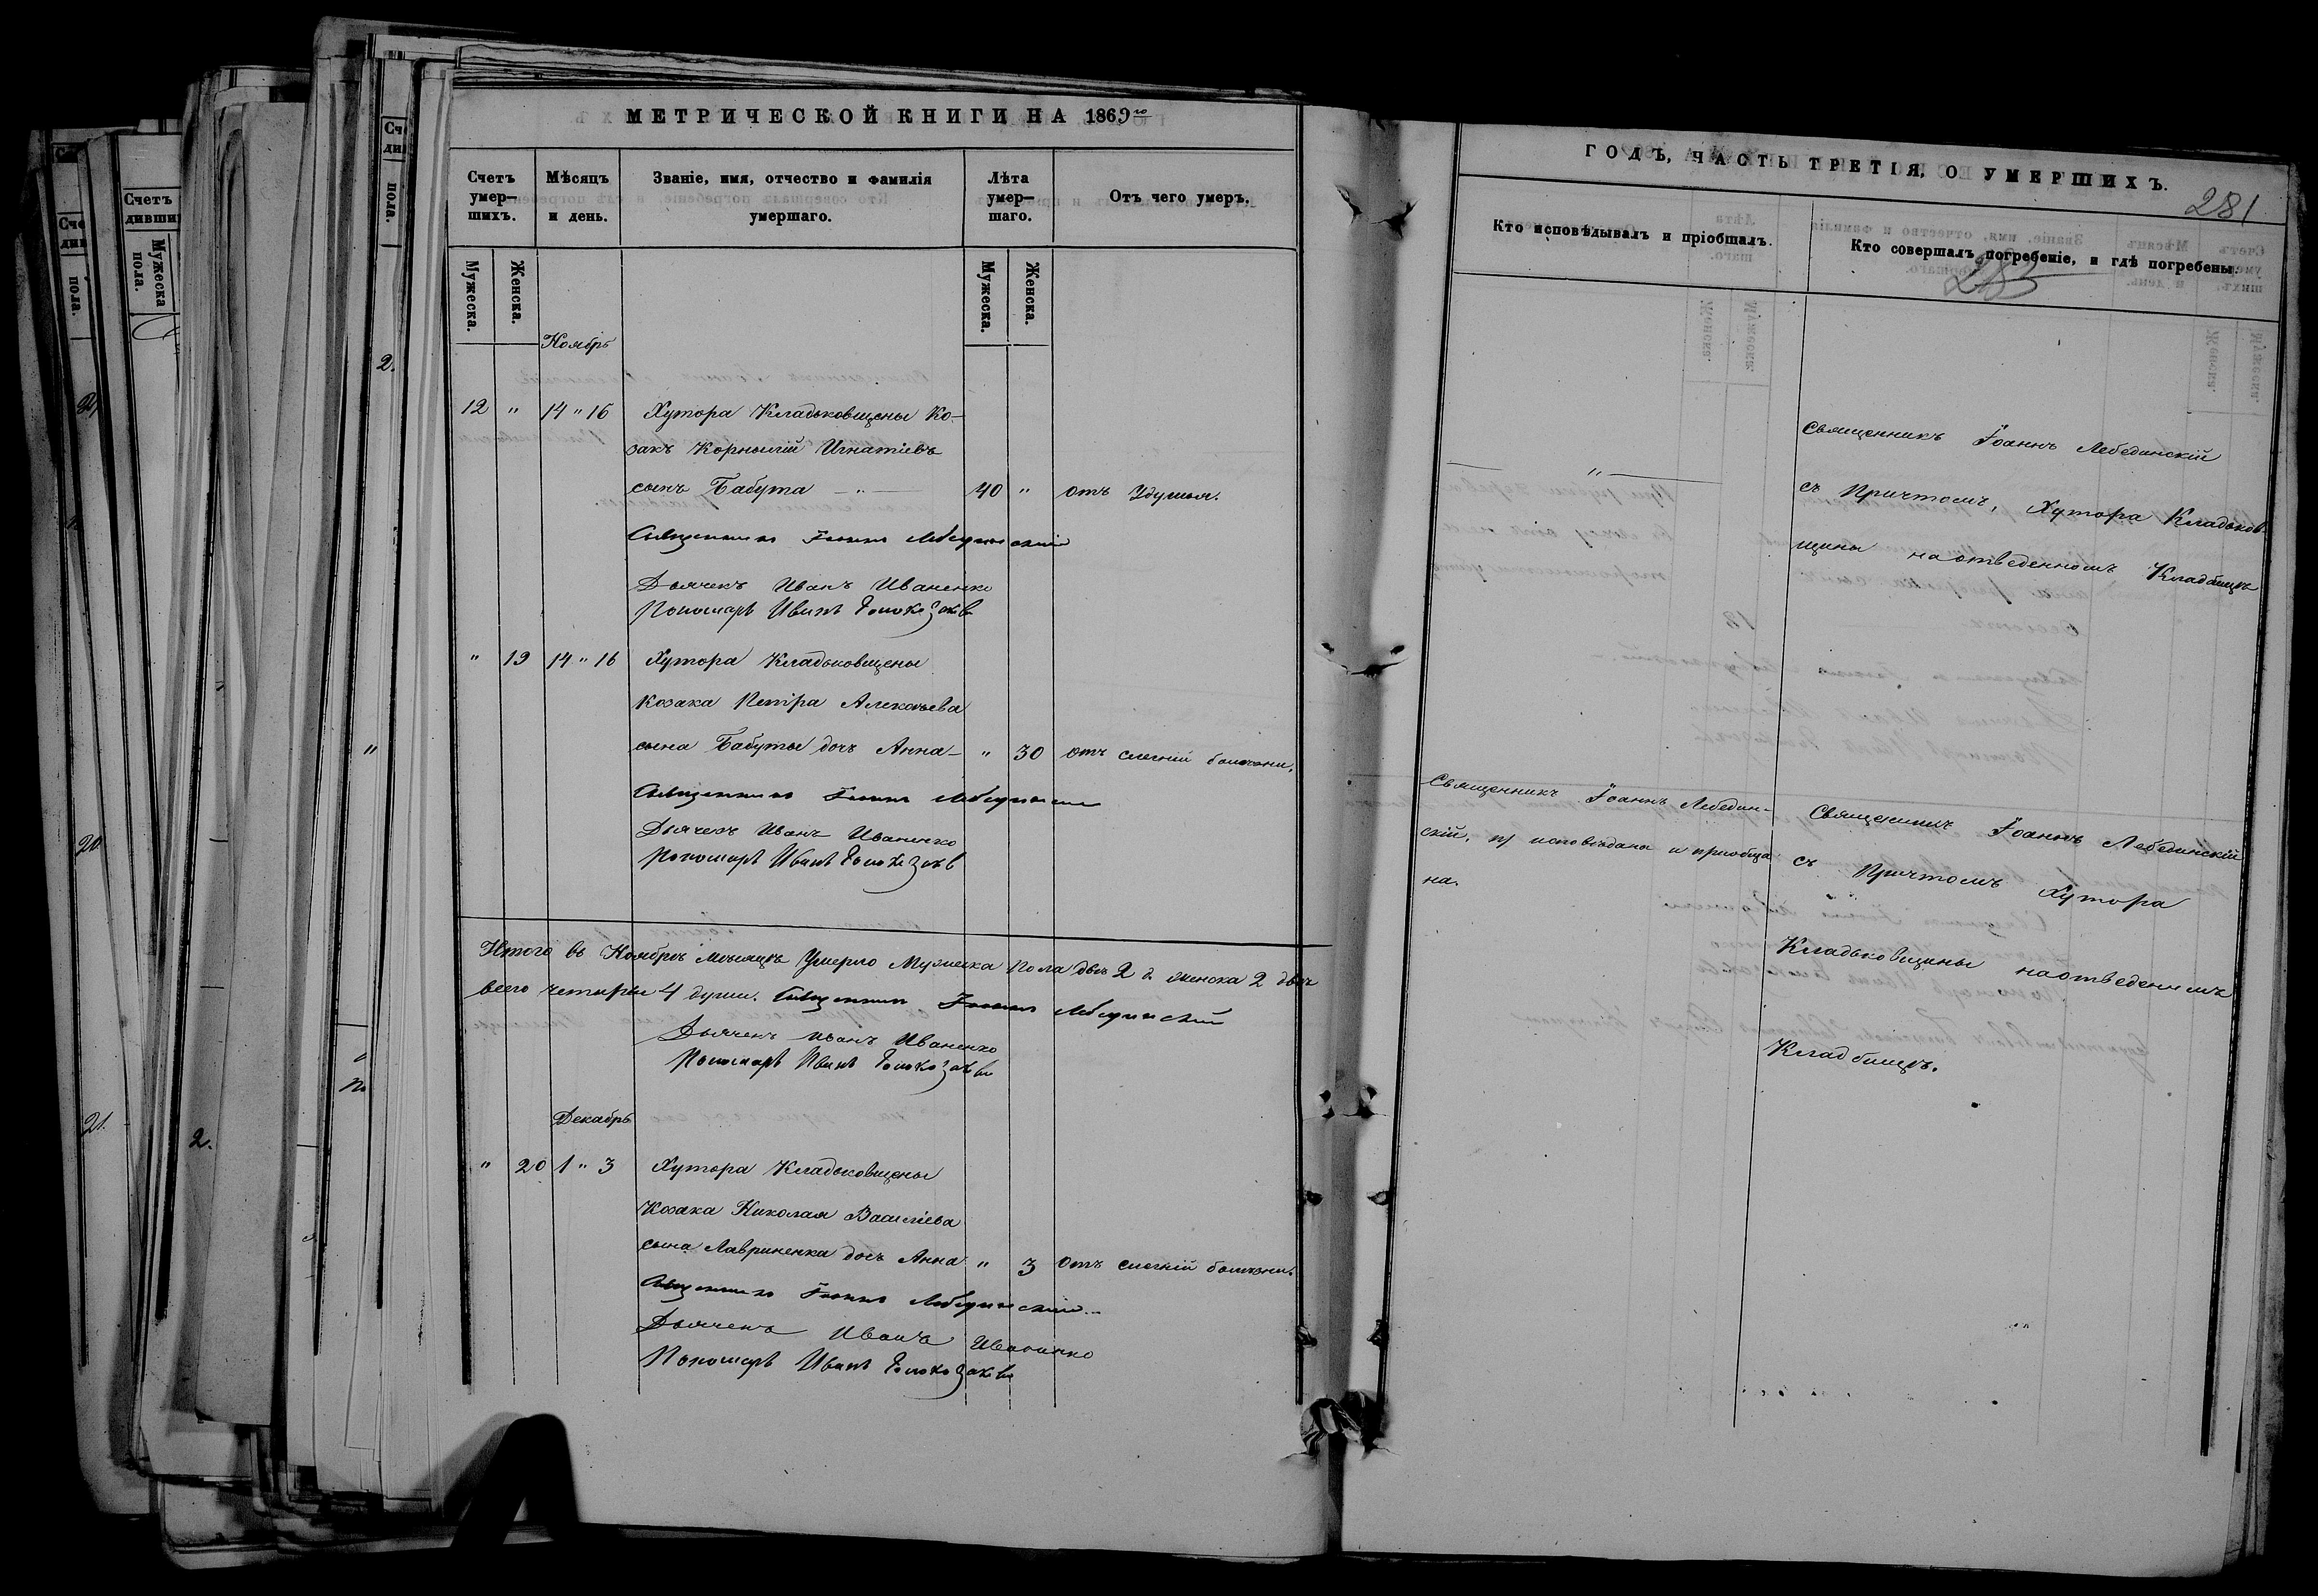 МЕТРИЧЕСКОЙ КНИГИ НА 1869го
Счетъ умер-шихъ.
Мѣсяцъ и день.
Званіе, имя, отчество и фамилія умершаго.
Лѣта умер-шаго.
Отъ чего умеръ.
Мужеска.
Женска.
Мужеска.
Женска.
Ноябрь
12 " 14 " 16 Хутора Кладьковщены Ко-
закъ Корнилій Игнатіевъ
сынъ Бабута — " — 40 " отъ удушья.
Священникъ Іоаннъ Лебединскій
Дьячекъ Иванъ Иваненко
Пономарь Иванъ
" 19 14 " 16 Хутора Кладьковщены
Козака Петра Алексѣева
сына Бабуты дочь Анна — " 30 отъ болѣзни.
Священникъ Іоаннъ Лебединскій
Дьячекъ Иванъ Иваненко
Пономарь Иванъ
Итого въ Ноябрѣ мѣсяцѣ умерло Мужеска пола двѣ 2 д. женска 2 двѣ
всего четыре 4 души. Священникъ Іоаннъ Лебединскій
Дьячекъ Иванъ Иваненко
Пономарь Иванъ
Декабрь
" 20 1 " 3 Хутора Кладьковщены
Козака Николая Василіева
сына Лавриненка дочь Анна " 3 отъ болѣзни.
Священникъ Іоаннъ Лебединскій
Дьячекъ Иванъ Иваненко
Пономарь Иванъ
ГОДЪ, ЧАСТЬ ТРЕТІЯ, О УМЕРШИХЪ.
281
Кто исповѣдывалъ и пріобщалъ.
Кто совершалъ погребеніе, и гдѣ погребены.
— " —
Священникъ Іоаннъ Лебединскій
съ Причтомъ, Хутора Кладьков-
щины на отведенномъ Кладбищѣ
Священникъ Іоаннъ Лебедин-
скій, исповѣдана и пріобще
на.
Священникъ Іоаннъ Лебединскій
съ Причтомъ Хутора
Кладьковщины на отведенномъ
Кладбищѣ.